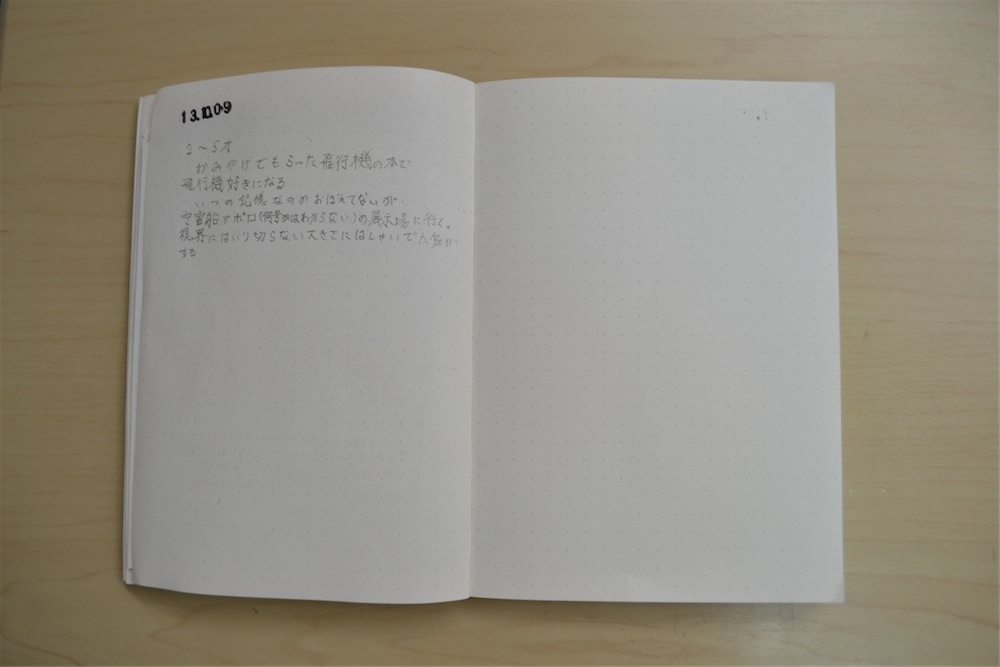 13.10.09
2〜5才
おみやげでもらった飛行機の本で
飛行機好きになる
いつの記憶なのかおぼえてないが、
宇宙船アポロ(何号かはわからない)の展示場に行く。
視界にはいり切らない大きさにはしゃいでた気が
する